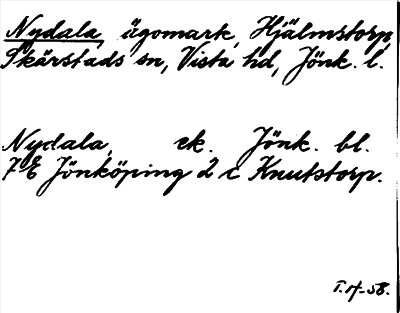 Nydala, ägomark, Hjälmstorp,
Skärstads sn, Vista hd, Jönk. l.
Nydala, ek. Jönk. bl.
7 E Jönköping 2 c Knutstorp.